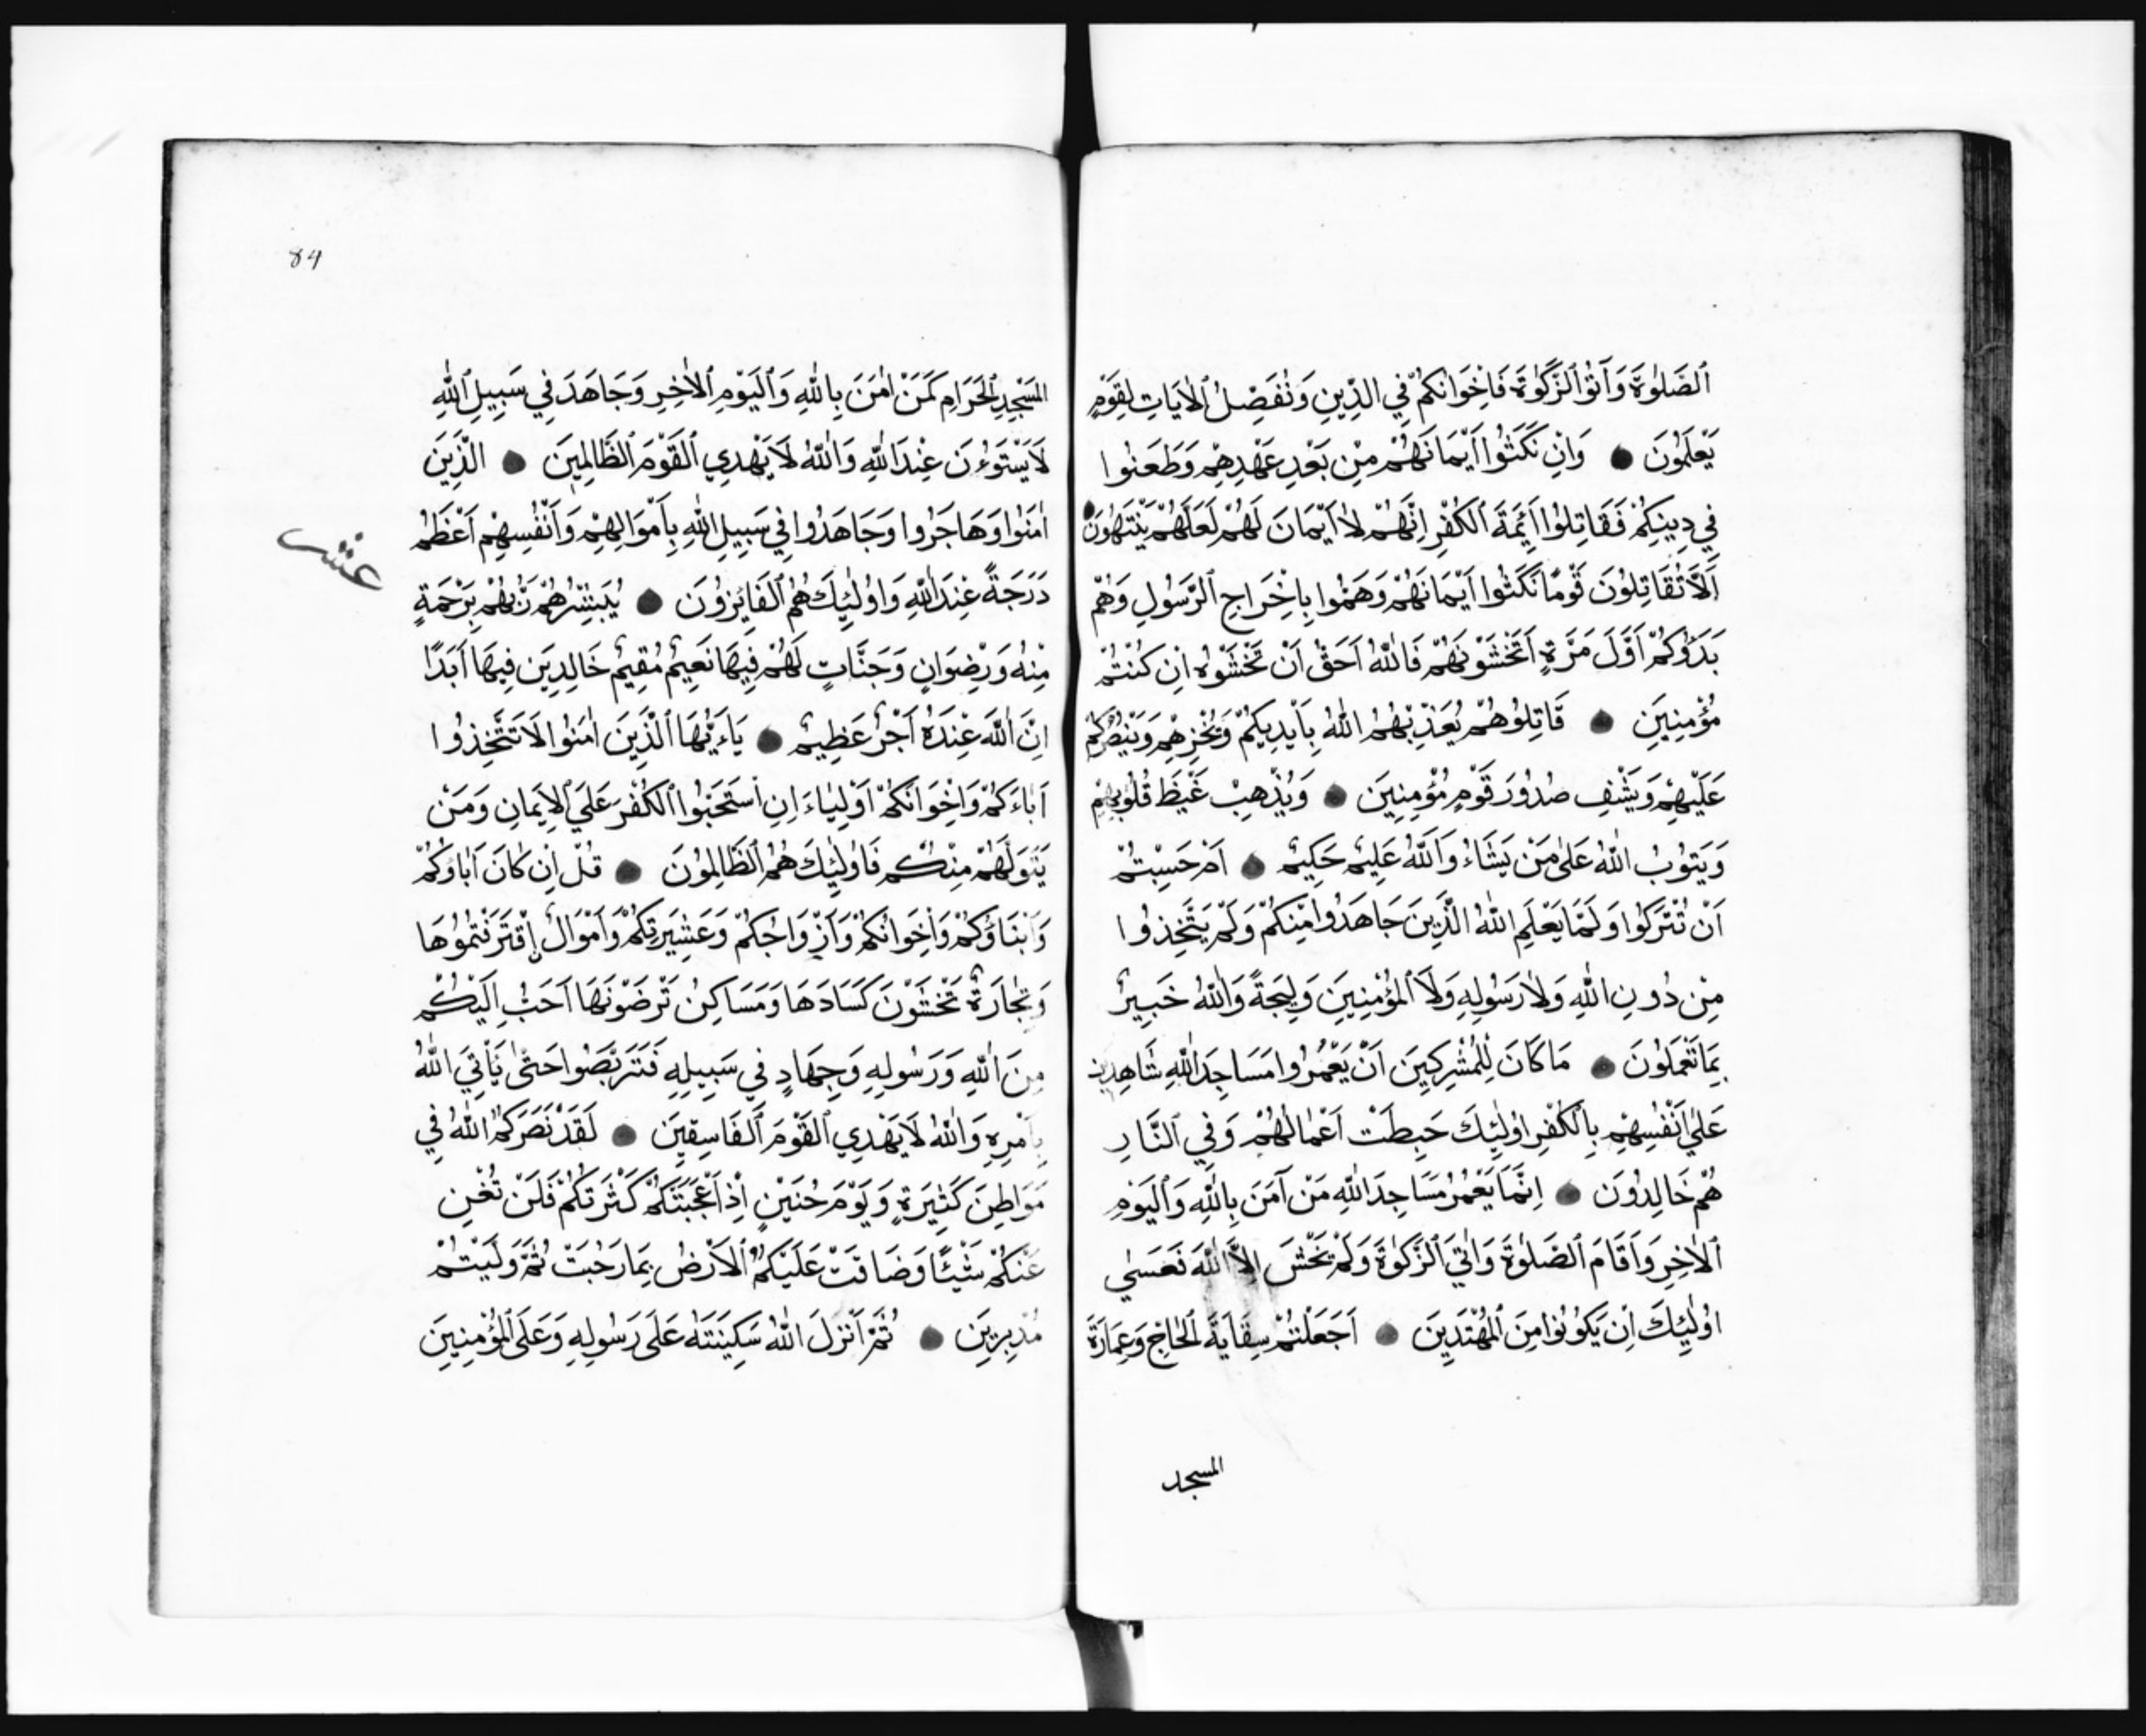 ٱلصَّلٰوةَ وَآتَوُا ٱلزَّكٰوةَ فَاِخْوَانُكُمْ فِي الدِّينِ وَنُفَصِّلُ ٱلْاٰيَاتِ لِقَوْمٍ
يَعْلَمُونَ ● وَاِنْ نَكَثُوا اَيْمَانَهُمْ مِنْ بَعْدِ عَهْدِهِمْ وَطَعَنُوا
فِي دِينِكُمْ فَقَاتِلُوا اَئِمَّةَ ٱلْكُفْرِ اِنَّهُمْ لَا اَيْمَانَ لَهُمْ لَعَلَّهُمْ يَنْتَهُونَ ●
اَلَا تُقَاتِلُونَ قَوْمًا نَكَثُوا اَيْمَانَهُمْ وَهَمُّوا بِاِخْرَاجِ ٱلرَّسُولِ وَهُمْ
بَدَؤُكُمْ اَوَّلَ مَرَّةٍ اَتَخْشَوْنَهُمْ فَاللّٰهُ اَحَقُّ اَنْ تَخْشَوْهُ اِنْ كُنْتُمْ
مُؤْمِنِينَ ● قَاتِلُوهُمْ يُعَذِّبْهُمُ اللّٰهُ بِاَيْدِيكُمْ وَيُخْزِهِمْ وَيَنْصُرْكُمْ
عَلَيْهِمْ وَيَشْفِ صُدُورَ قَوْمٍ مُؤْمِنِينَ ● وَيُذْهِبْ غَيْظَ قُلُوبِهِمْ
وَيَتُوبُ اللّٰهُ عَلٰى مَنْ يَشَاءُ وَاَللّٰهُ عَلِيمٌ حَكِيمٌ ● اَمْ حَسِبْتُمْ
اَنْ تُتْرَكُوا وَلَمَّا يَعْلَمِ اللّٰهُ الَّذِينَ جَاهَدُوا مِنْكُمْ وَلَمْ يَتَّخِذُوا
مِنْ دُونِ اللّٰهِ وَلَا رَسُولِهِ وَلَا ٱلْمُؤْمِنِينَ وَلِيجَةً وَاللّٰهُ خَبِيرٌ
بِمَا تَعْمَلُونَ ● مَا كَانَ لِلْمُشْرِكِينَ اَنْ يَعْمُرُوا مَسَاجِدَ اللّٰهِ شَاهِدِينَ
عَلٰى اَنْفُسِهِمْ بِالْكُفْرِ اُولٰئِكَ حَبِطَتْ اَعْمَالُهُمْ وَفِي ٱلنَّارِ
هُمْ خَالِدُونَ ● اِنَّمَا يَعْمُرُ مَسَاجِدَ اللّٰهِ مَنْ آمَنَ بِاللّٰهِ وَٱلْيَوْمِ
ٱلْاٰخِرِ وَاَقَامَ ٱلصَّلٰوةَ وَاٰتَي ٱلزَّكٰوةَ وَلَمْ يَخْشَ اِلَّا اللّٰهَ فَعَسٰي
اُولٰئِكَ اَنْ يَكُونُوا مِنَ ٱلْمُهْتَدِينَ ● اَجَعَلْتُمْ سِقَايَةَ ٱلْحَاجِّ وَعِمَارَةَ
المسجد
84
المَسْجِدِ ٱلْحَرَامِ كَمَنْ اٰمَنَ بِاللّٰهِ وَٱلْيَوْمِ ٱلْاٰخِرِ وَجَاهَدَ فِي سَبِيلِ ٱللّٰهِ
لَا يَسْتَوُونَ عِنْدَ اللّٰهِ وَاللّٰهُ لَا يَهْدِي ٱلْقَوْمَ ٱلظَّالِمِينَ ● الَّذِينَ
اٰمَنُوا وَهَاجَرُوا وَجَاهَدُوا فِي سَبِيلِ اللّٰهِ بِاَمْوَالِهِمْ وَاَنْفُسِهِمْ اَعْظَمُ
عشر
دَرَجَةً عِنْدَ اللّٰهِ وَاُولٰئِكَ هُمُ ٱلْفَائِزُونَ ● يُبَشِّرُهُمْ رَبُّهُمْ بِرَحْمَةٍ
مِنْهُ وَرِضْوَانٍ وَجَنَّاتٍ لَهُمْ فِيهَا نَعِيمٌ مُقِيمٌ خَالِدِينَ فِيهَا اَبَدًا
اِنَّ اللّٰهَ عِنْدَهُ اَجْرٌ عَظِيمٌ ● يَاءَيُّهَا ٱلَّذِينَ اٰمَنُوا لَا تَتَّخِذُوا
اٰبَاءَكُمْ وَاِخْوَانَكُمْ اَوْلِيَاءَ اِنِ اسْتَحَبُّوا ٱلْكُفْرَ عَلَي ٱلْاِيمَانِ وَمَنْ
يَتَوَلَّهُمْ مِنْكُمْ فَاُولٰئِكَ هُمُ ٱلظَّالِمُونَ ● قُلْ اِنْ كَانَ اٰبَاؤُكُمْ
وَاَبْنَاؤُكُمْ وَاِخْوَانُكُمْ وَاَزْوَاجُكُمْ وَعَشِيرَتُكُمْ وَاَمْوَالٌ اِقْتَرَفْتُمُوهَا
وَتِجَارَةٌ تَخْشَوْنَ كَسَادَهَا وَمَسَاكِنُ تَرْضَوْنَهَا اَحَبَّ اِلَيْكُمْ
مِنَ اللّٰهِ وَرَسُولِهِ وَجِهَادٍ فِي سَبِيلِهِ فَتَرَبَّصُوا حَتّٰى يَأْتِيَ اللّٰهُ
بِاَمْرِهِ وَاللّٰهُ لَا يَهْدِي ٱلْقَوْمَ ٱلْفَاسِقِينَ ● لَقَدْ نَصَرَكُمُ اللّٰهُ فِي
مَوَاطِنَ كَثِيرَةٍ وَيَوْمَ حُنَيْنٍ اِذْ اَعْجَبَتْكُمْ كَثْرَتُكُمْ فَلَنْ تُغْنِ
عَنْكُمْ شَيْئًا وَضَاقَتْ عَلَيْكُمُ ٱلْاَرْضُ بِمَا رَحُبَتْ ثُمَّ وَلَّيْتُمْ
مُدْبِرِينَ ● ثُمَّ اَنْزَلَ اللّٰهُ سَكِينَتَهُ عَلَى رَسُولِهِ وَعَلَى ٱلْمُؤْمِنِينَ